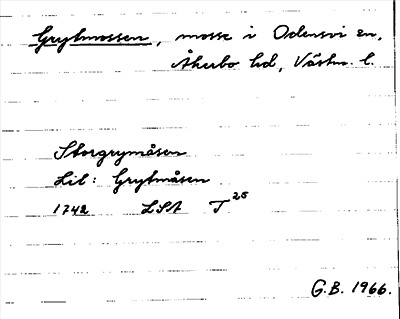 Grytmossen, mosse i Odensvi sn,
Åkerbo hd, Västm. l.
Storgrymåsen
Lil: Grytmåsen
1742 LSA T 25
G.B. 1966.